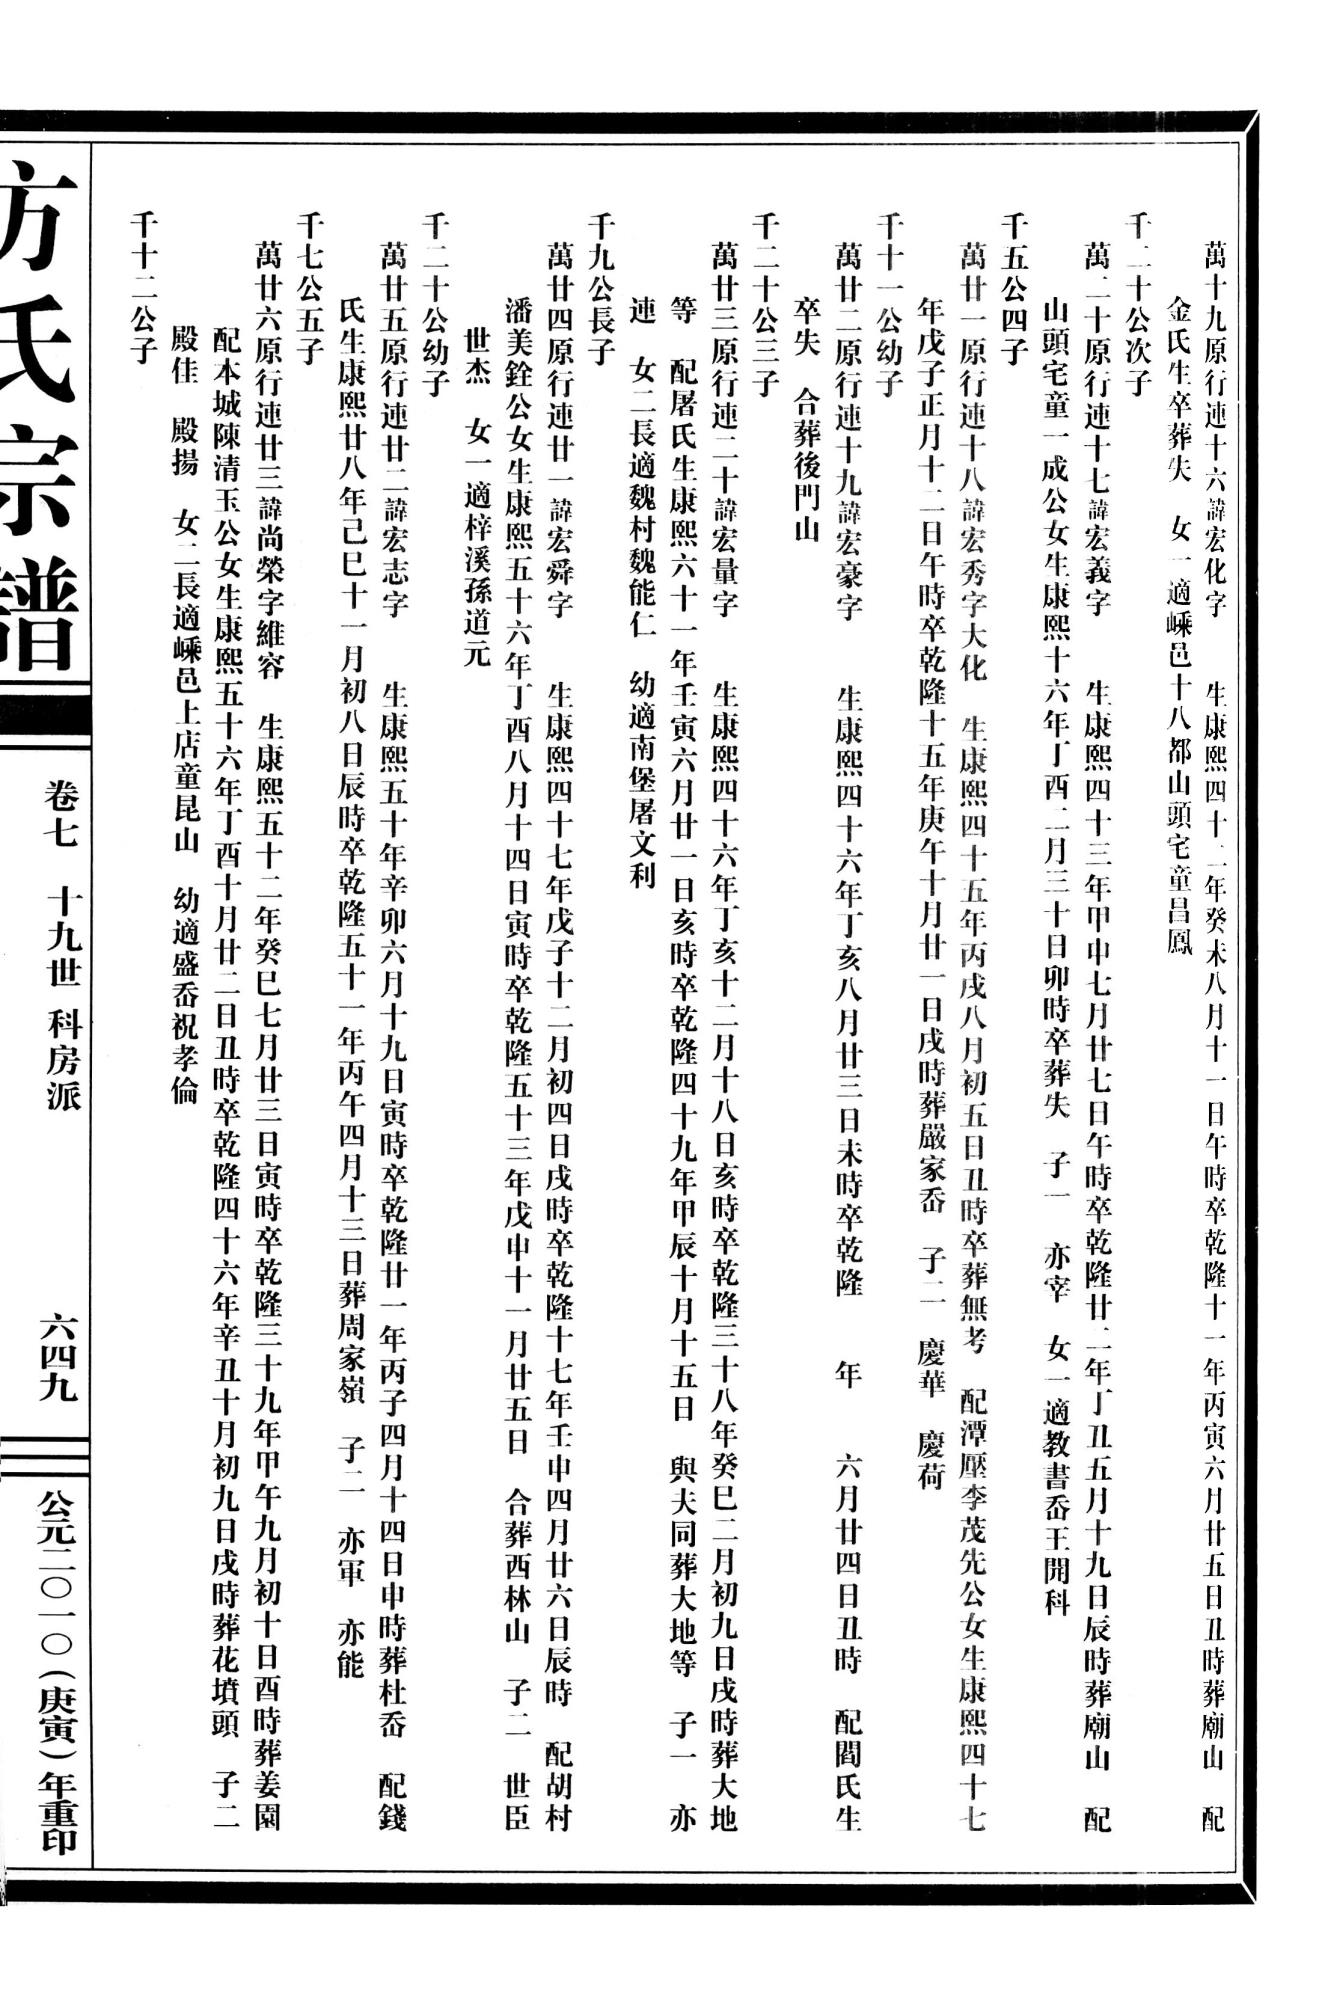 萬十九原行連十六諱宏化字　生康熙四十二年癸未八月十一日午時卒乾隆十一年丙寅六月廿五日丑時葬廟山　配
金氏生卒葬失　女一適嵊邑十八都山頭宅童昌鳳
千二十公次子
萬二十原行連十七諱宏義字　生康熙四十三年甲申七月廿七日午時卒乾隆廿二年丁丑五月十九日辰時葬廟山　配
山頭宅童一成公女生康熙十六年丁酉二月三十日卯時卒葬失　子一　亦宰　女一適教書岙王開科
千五公四子
萬廿一原行連十八諱宏秀字大化　生康熙四十五年丙戌八月初五日丑時卒葬無考　配潭壓李茂先公女生康熙四十七
年戊子正月十二日午時卒乾隆十五年庚午十月廿一日戌時葬嚴家岙　子二　慶華　慶荷
千十一公幼子
萬廿二原行連十九諱宏豪字　生康熙四十六年丁亥八月廿三日未時卒乾隆　年　六月廿四日丑時　配閻氏生
卒失　合葬後門山
千二十公三子
萬廿三原行連二十諱宏量字　生康熙四十六年丁亥十二月十八日亥時卒乾隆三十八年癸巳二月初九日戌時葬大地
等　配屠氏生康熙六十一年壬寅六月廿一日亥時卒乾隆四十九年甲辰十月十五日　與夫同葬大地等　子一　亦
連　女二長適魏村魏能仁　幼適南堡屠文利
千九公長子
萬廿四原行連廿一諱宏舜字　生康熙四十七年戊子十二月初四日戌時卒乾隆十七年壬申四月廿六日辰時　配胡村
潘美銓公女生康熙五十六年丁酉八月十四日寅時卒乾隆五十三年戊申十一月廿五日　合葬西林山　子二　世臣
世杰　女一適梓溪孫道元
千二十公幼子
萬廿五原行連廿二諱宏志字　生康熙五十年辛卯六月十九日寅時卒乾隆廿一年丙子四月十四日申時葬杜岙　配錢
氏生康熙廿八年己巳十一月初八日辰時卒乾隆五十一年丙午四月十三日葬周家嶺　子二　亦軍　亦能
千七公五子
萬廿六原行連廿三諱尚榮字維容　生康熙五十二年癸巳七月廿三日寅時卒乾隆三十九年甲午九月初十日酉時葬姜園
配本城陳清玉公女生康熙五十六年丁酉十月廿二日丑時卒乾隆四十六年辛丑十月初九日戌時葬花墳頭　子二
殿佳　殿揚　女二長適嵊邑上店童昆山　幼適盛岙祝孝倫
千十二公子
方氏宗譜
卷七　十九世　科房派
六四九
公元二〇一〇（庚寅）年重印